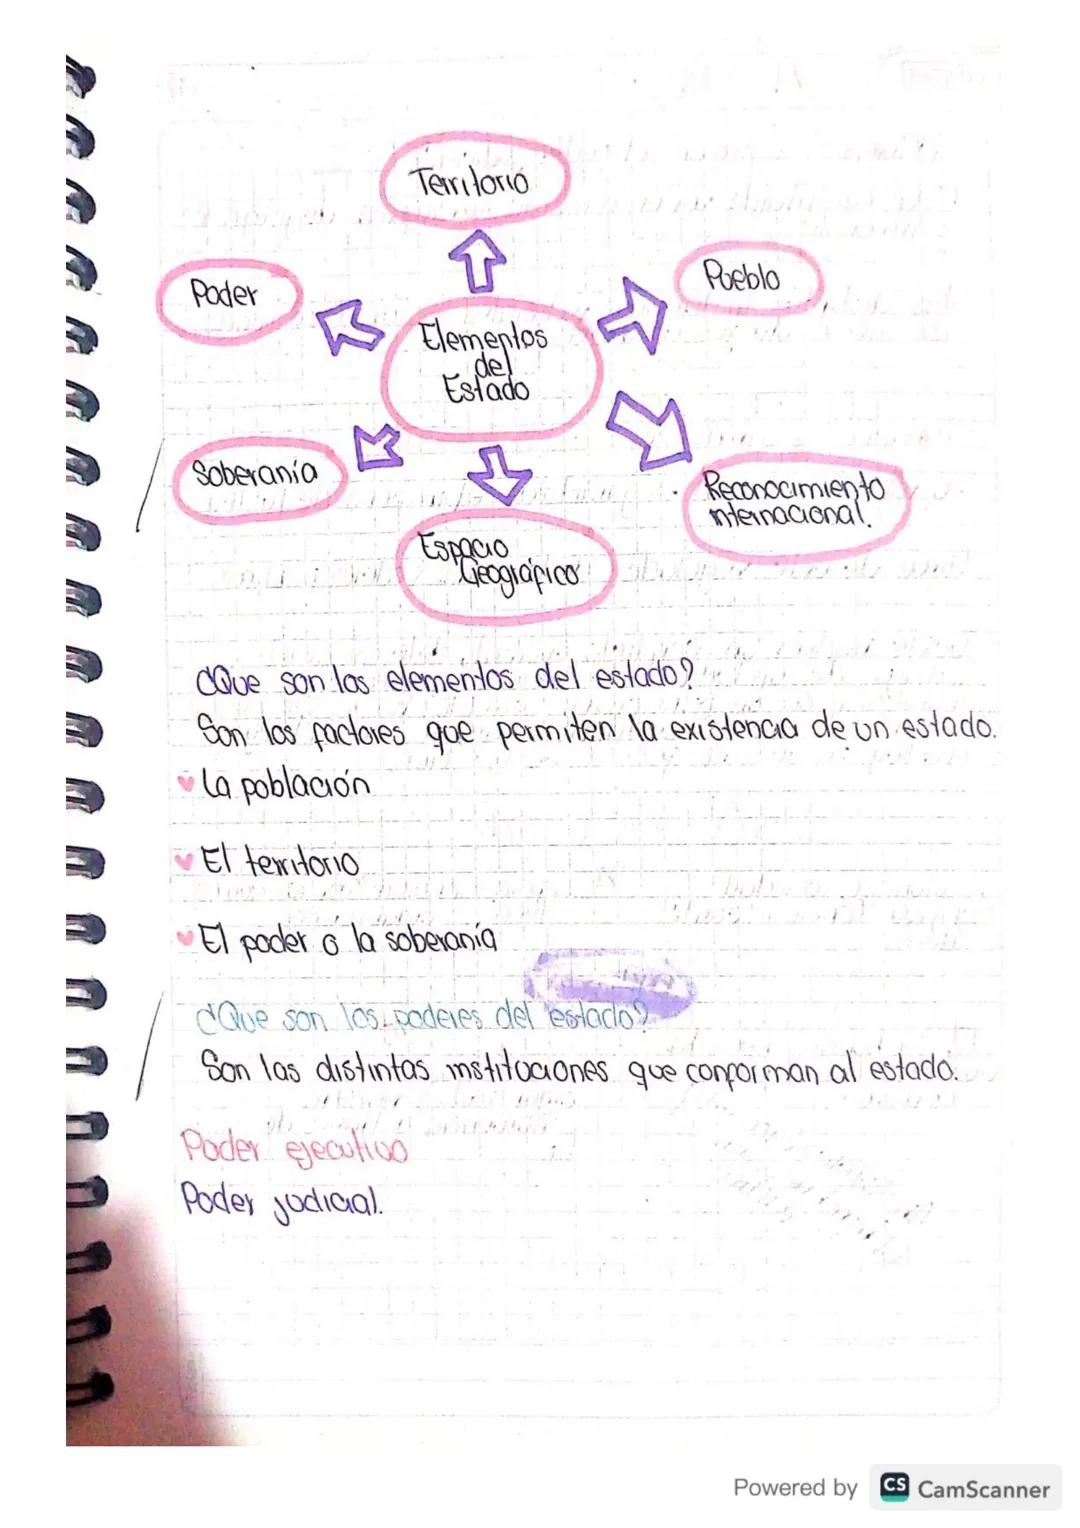 Territorio
Poder
Pueblo
Elementos
del
Estado
Soberanía
Reconocimiento
internacional.
Espacio
Geográfico
¿Que son los elementos del estado?
Son los factores que permiten la existencia de un estado.
La población
El territorio
El poder o la soberanía
¿Que son los poderes del estado?
Son las distintas instituciones que conforman al estado.
Poder ejecutivo
Poder judicial.
Powered by CS CamScanner